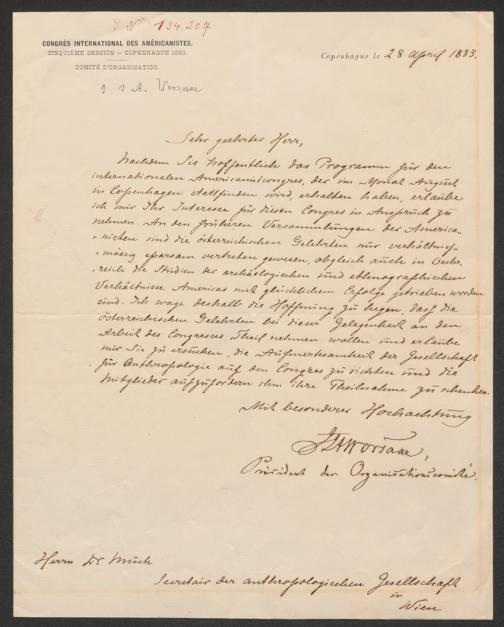 I. N. 134.207
CONGRÈS INTERNATIONAL DES AMÉRICANISTES.
CINQUIÈME SESSION — COPENHAGUE 1883.
COMITÉ D'ORGANISATION.
Copenhague le 28 April 1883.
J. J. A. Worsaae
Sehr geehrter Herr,
Nachdem Sie hoffentlich das Programm für den
internationalen Americanistcongres, der im Monat August
in Copenhagen stattfinden wird, erhalten haben, erlaube
ich mir Ihr Interesse für diesen Congres in Anspruch zu
nehmen. An den früheren Versammlungen der America-
nisten sind die österreichischen Gelehrten nur verhältniss-
mässig sparsam vertreten gewesen, obgleich auch in Oester-
reich die Studien der archäologischen und ethnographischen
Verhältnisse Americas mit glücklichem Erfolge getrieben worden
sind. Ich wage deshalb die Hoffnung zu hegen, dass die
österreichischen Gelehrten bei dieser Gelegenheit an den
Arbeit des Congresses Theil nehmen wollen und erlaube
mir Sie zu ersuchen, die Aufmerksamkeit der Gesellschaft
für Anthropologie auf den Congres zu richten und die
Mitglieder aufzufordern ihm ihre Theilnahme zu schenken.
Mit besonderer Hochachtung
JJAWorsaae,
Präsident der Organisationscomité.
Herrn Dr Much
Secretair der anthropologischen Gesellschaft
in
Wien